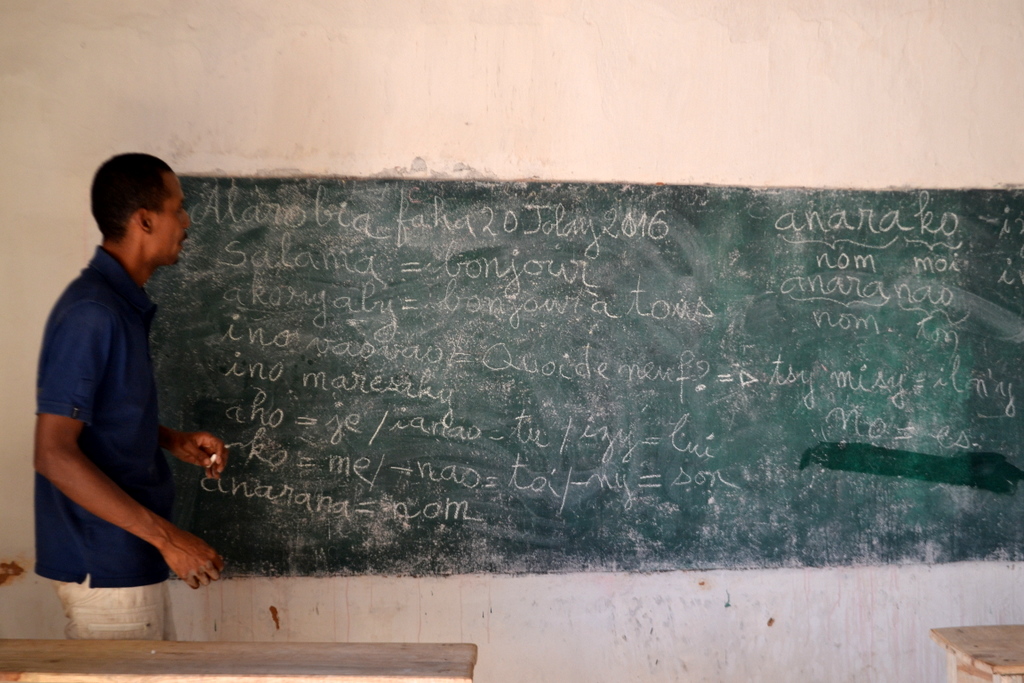 Alarobia faha 20 Jolay 2016
Salama = bonjour
akoryaly = bonjour à tous
ino vaovao = Quoi de neuf? => tsy misy = il n'y
ino maresaky
aho = je / ianao - tu / izy = lui
-ko = me / -nao = toi / -ny = son
anarana = nom
anarako
nom moi
anaranao
nom
No = es